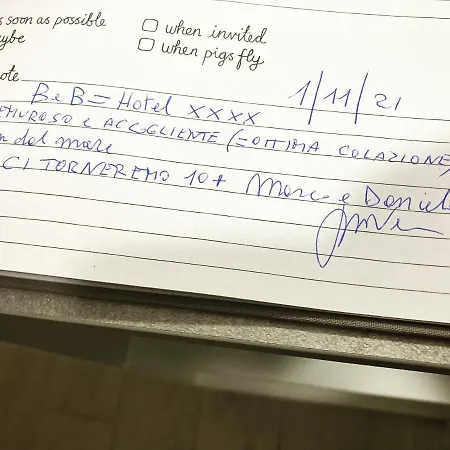 s soon as possible
ybe
when invited
when pigs fly
ote
1/11/21
B e B = Hotel xxxx
EMUROSO e ACCOGLIENTE (= OTTIMA COLAZIONE)
del mare
CI TORNEREMO 10+ Marc e Daniel